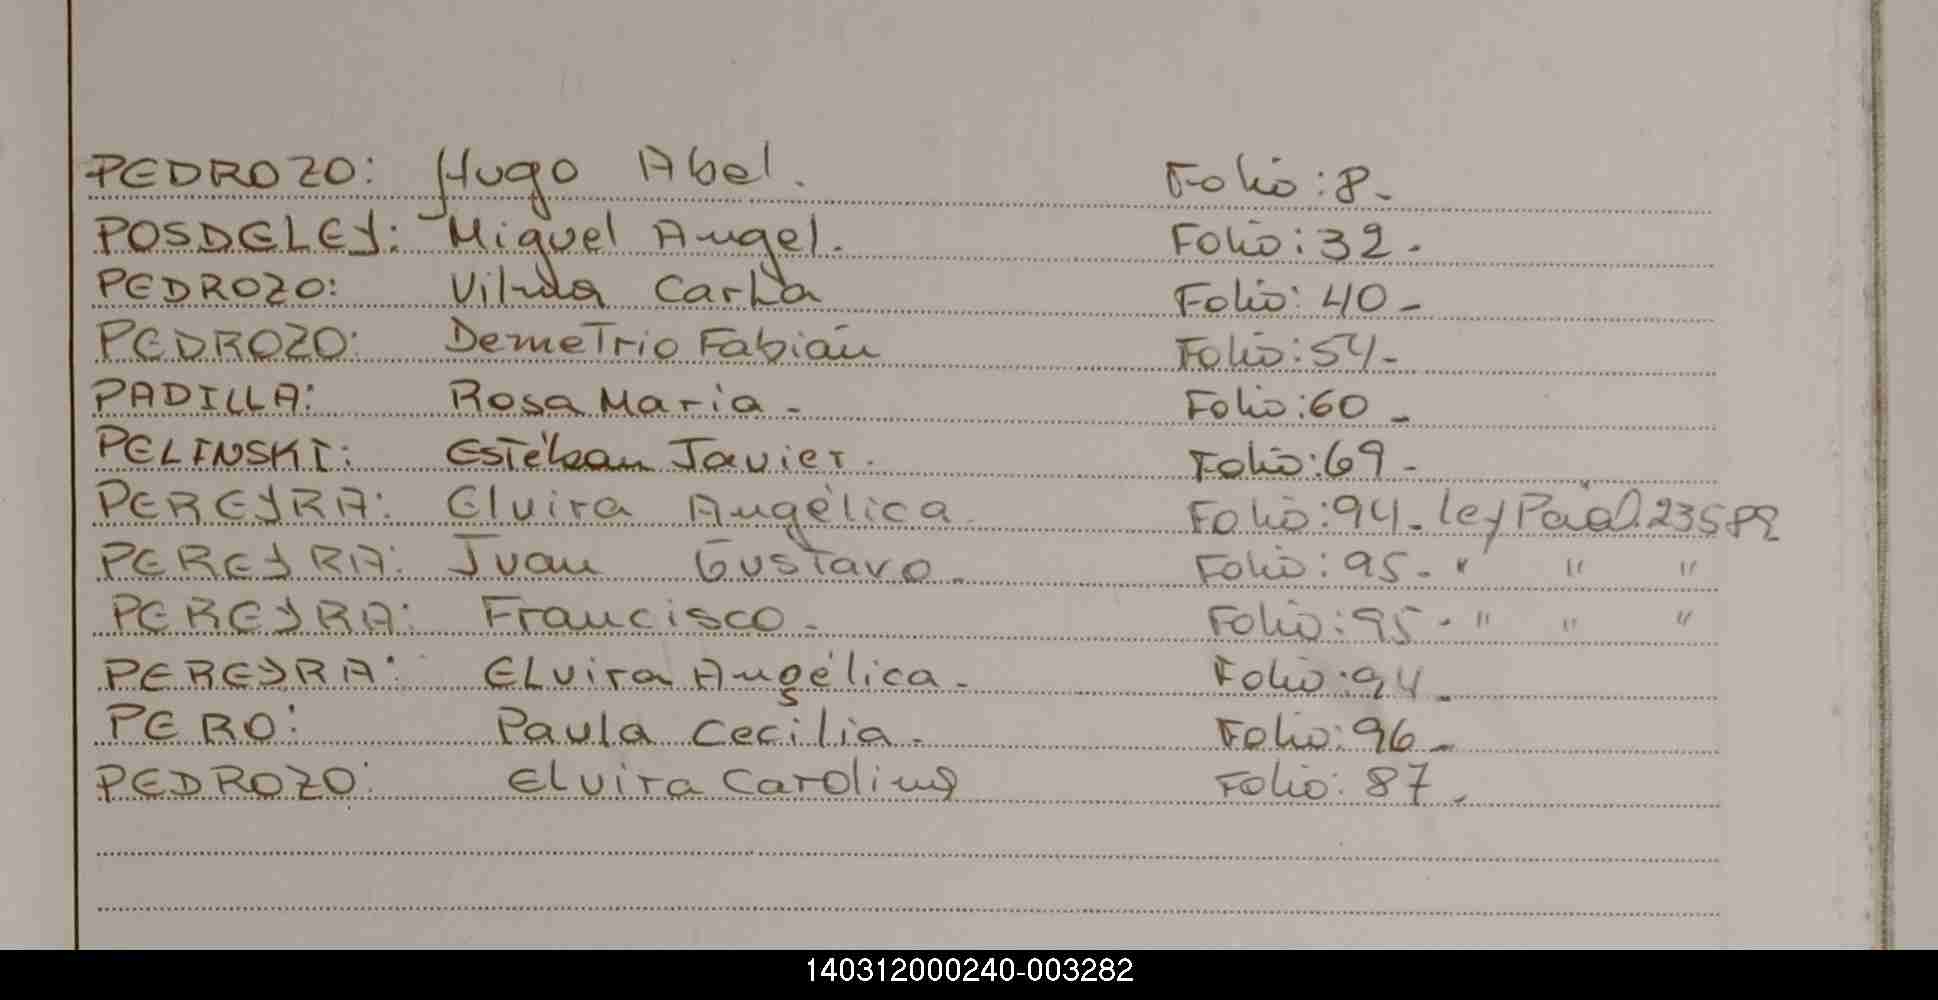 PEDROZO: Hugo Abel. Folio: 8_
POSDELEY: Miguel Angel. Folio: 32.
PEDROZO: Vilma Carla Folio: 40_
PEDROZO: Demetrio Fabián Folio: 54_
PADILLA: Rosa Maria_ Folio: 60_
PELINSKI: Estéban Javier. Folio: 69_
PEREYRA: Elvira Angélica. Folio: 94_ ley 23582
PEREYRA: Juan Gustavo_ Folio: 95_ " " "
PEREYRA: Francisco_ Folio: 95_ " " "
PEREYRA: Elvira Angélica_ Folio: 94_
PERO: Paula Cecilia_ Folio: 96_
PEDROZO: Elvira Carolina Folio: 87_
140312000240-003282